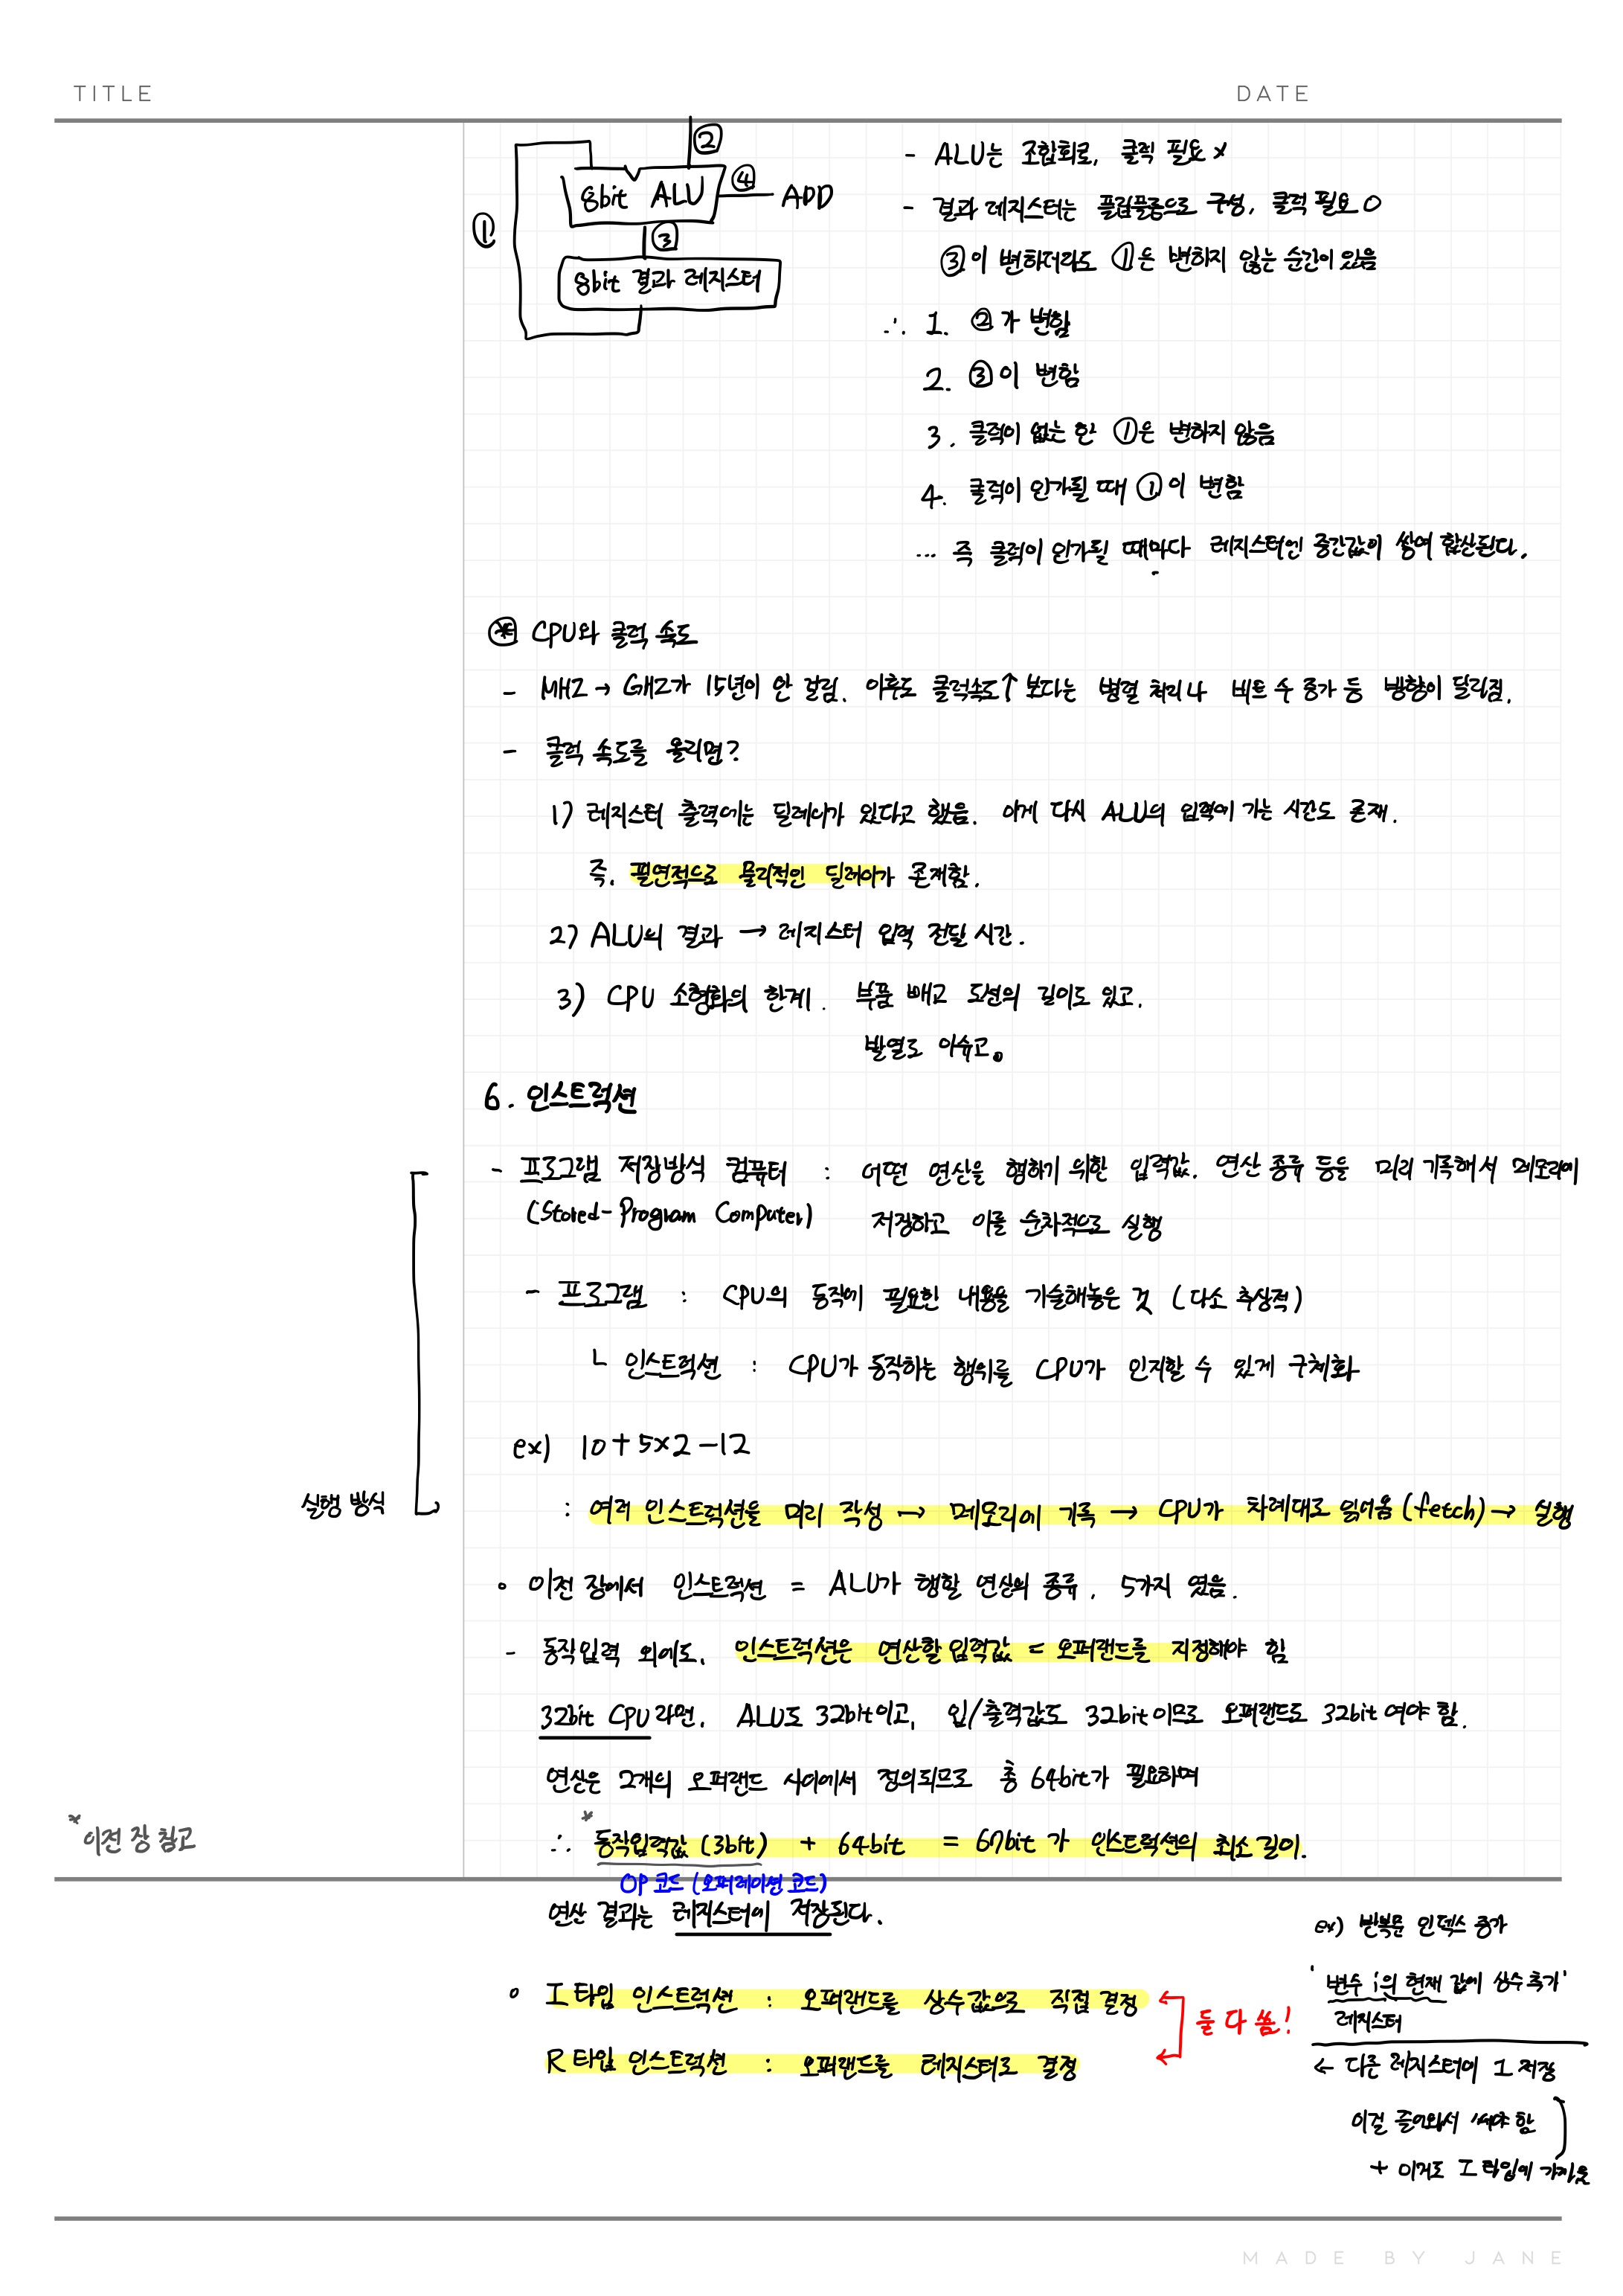 TITLE
DATE
②
8bit ALU
④
ADD
①
③
8bit 결과 레지스터
- ALU는 조합회로, 클럭 필요 x
- 결과 레지스터는 플립플롭으로 구성, 클럭 필요 O
③이 변하더라도 ①은 변하지 않는 순간이 있음
∴ 1. ②가 변함
2. ③이 변함
3. 클럭이 없는 한 ①은 변하지 않음
4. 클럭이 인가될 때 ①이 변함
... 즉 클럭이 인가될 때마다 레지스터엔 중간값이 쌓여 합산된다.
※ CPU와 클럭 속도
- MHZ → GHZ가 15년이 안 걸림. 이후도 클럭속도↑ 보다는 병렬 처리나 비트 수 증가 등 방향이 달라짐.
- 클럭 속도를 올리면?
1) 레지스터 출력에는 딜레이가 있다고 했음. 이게 다시 ALU의 입력에 가는 시간도 존재.
즉, 필연적으로 물리적인 딜레이가 존재함.
2) ALU의 결과 → 레지스터 입력 전달 시간.
3) CPU 소형화의 한계. 부품 빼고 도선의 길이도 있고.
발열도 이슈고。
6. 인스트럭션
- 프로그램 저장방식 컴퓨터 : 어떤 연산을 행하기 위한 입력값, 연산 종류 등을 미리 기록해서 메모리에
(Stored-Program Computer) 저장하고 이를 순차적으로 실행
- 프로그램 : CPU의 동작에 필요한 내용을 기술해놓은 것 (다소 추상적)
ㄴ 인스트럭션 : CPU가 동작하는 행위를 CPU가 인지할 수 있게 구체화
ex) 10+5×2-12
실행 방식
: 여러 인스트럭션을 미리 작성 → 메모리에 기록 → CPU가 차례대로 읽어옴(fetch) → 실행
∘ 이전 장에서 인스트럭션 = ALU가 행할 연산의 종류, 5가지 였음.
- 동작입력 외에도, 인스트럭션은 연산할 입력값 = 오퍼랜드를 지정해야 함
32bit CPU 라면, ALU도 32bit이고, 입/출력값도 32bit이므로 오퍼랜드도 32bit여야 함.
연산은 2개의 오퍼랜드 사이에서 정의되므로 총 64bit가 필요하며
*이전 장 참고
∴ *동작입력값 (3bit) + 64bit = 67bit 가 인스트럭션의 최소 길이.
OP 코드 (오퍼레이션 코드)
연산 결과는 레지스터에 저장된다.
∘ I 타입 인스트럭션 : 오퍼랜드를 상수값으로 직접 결정
R 타입 인스트럭션 : 오퍼랜드를 레지스터로 결정
둘 다 씀!
ex) 반복문 인덱스 증가
'변수 i의 현재 값에 상수 추가'
레지스터
← 다른 레지스터에 1 저장
이걸 들고와서 써야 함
+ 이거도 I 타입에 가까움
MADE BY JANE